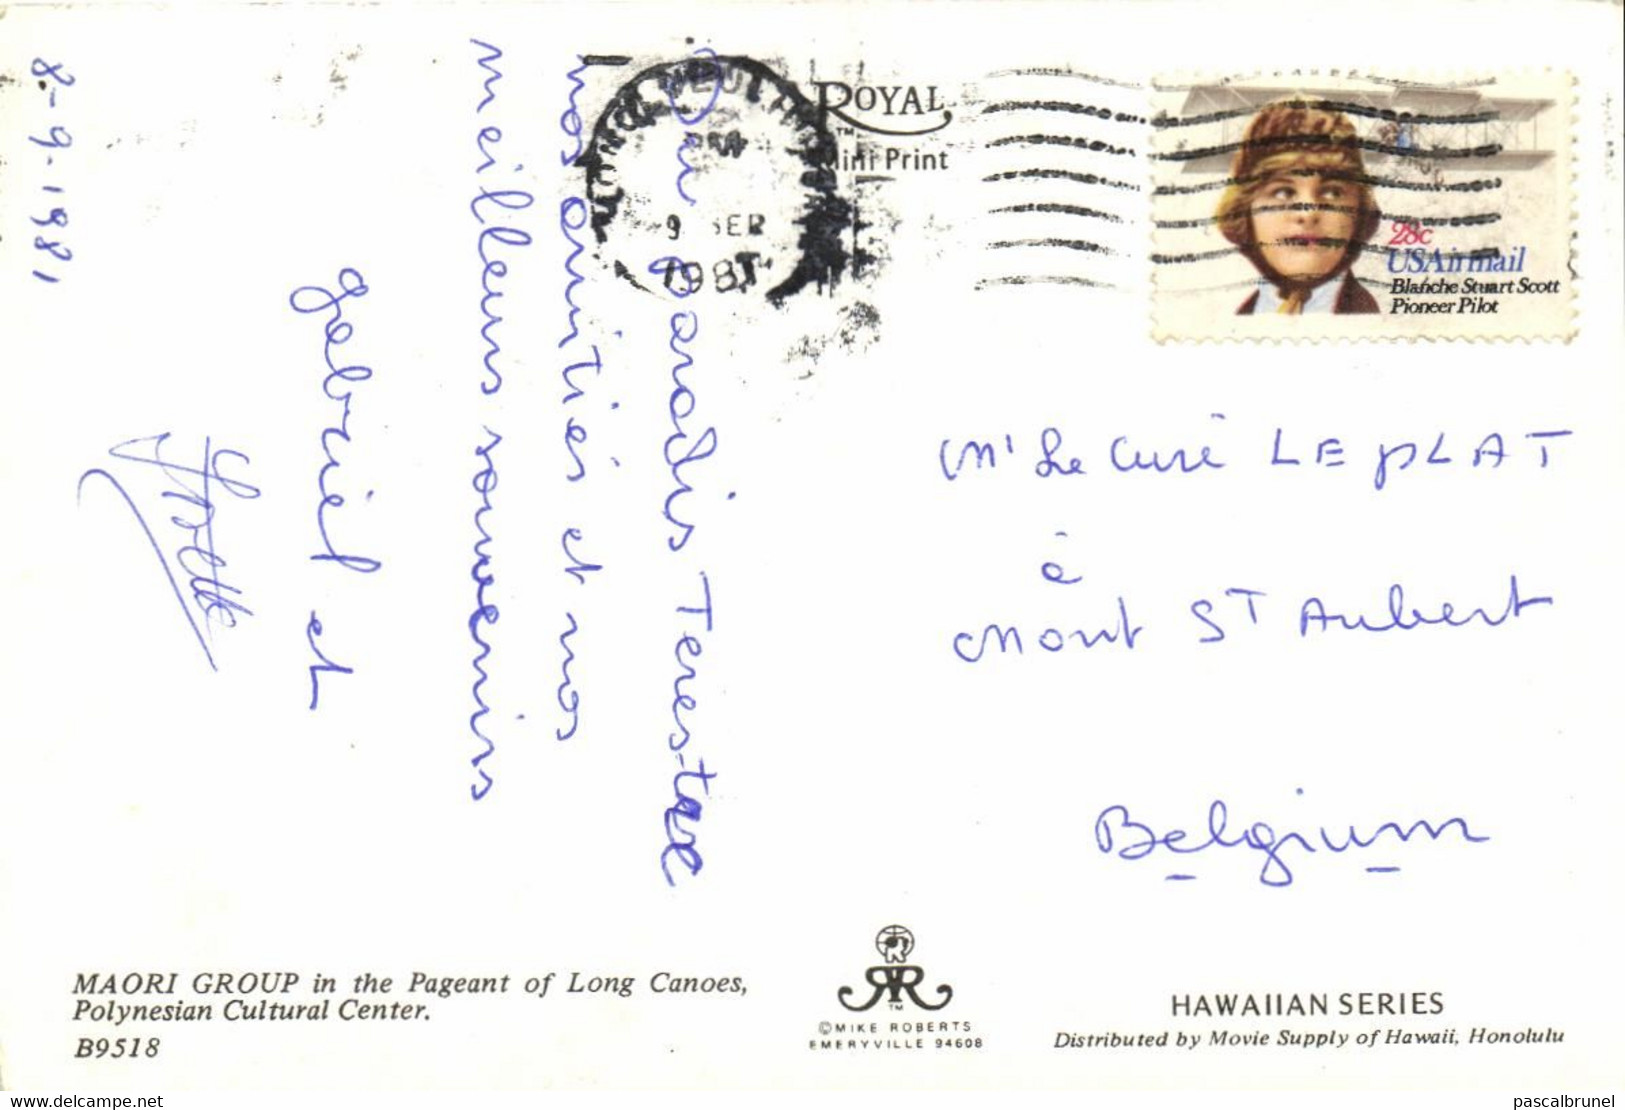 8-9-1981
Du paradis Terestre
nos amitiés et nos
meilleurs souvenirs
gabriel et
ROYAL
TM
Mini Print
HONOLULU
9 SEP
1981
28c
USAirmail
Blanche Stuart Scott
Pioneer Pilot
Mr Le Curé LEPLAT
à
Mont ST Aubert
Belgium
MAORI GROUP in the Pageant of Long Canoes,
Polynesian Cultural Center.
B9518
TM
©MIKE ROBERTS
EMERYVILLE 94608
HAWAIIAN SERIES
Distributed by Movie Supply of Hawaii, Honolulu
www.delcampe.net
pascalbrunel